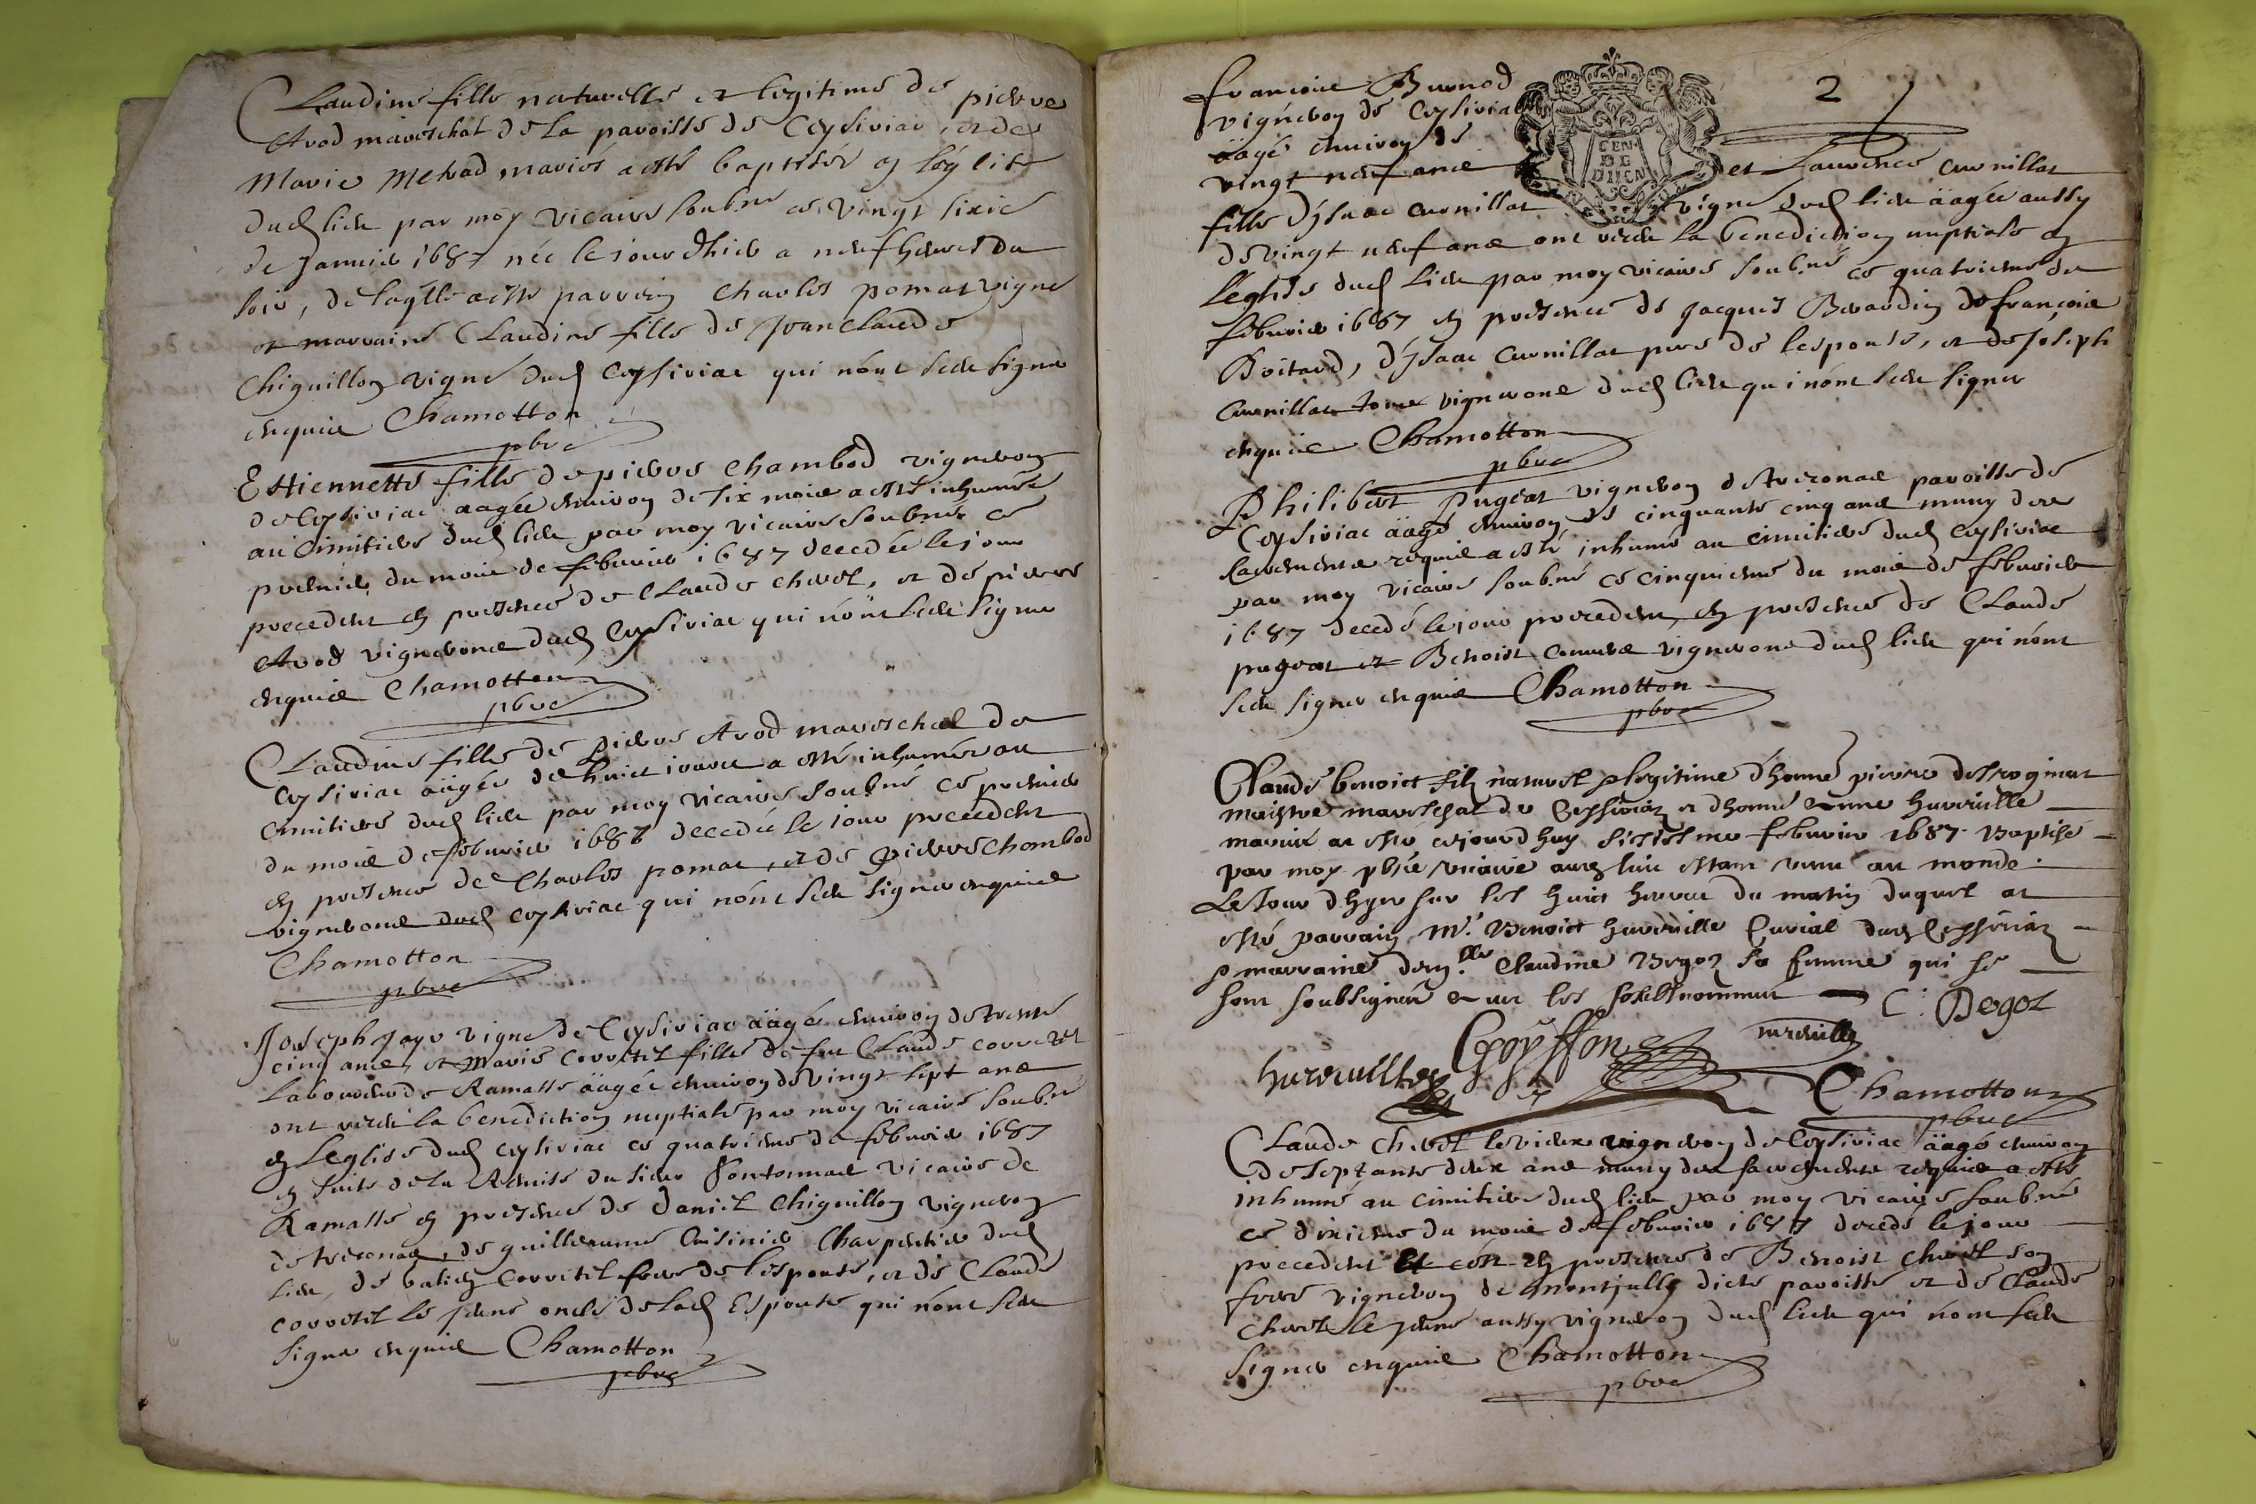 Claudine fille naturelle et legitime de pierre
Avod mareschal de la paroisse de Ceysiriac, et de
Marie Metrad mariés a esté baptisée en l'églize
dud lieu par moy vicaire soubné ce vingt sixie
de Janvier 1687 née le jour d'hier a neuf heures du
soir, de laqlle a esté parrein Charles pomat vigne
et marraine Claudine fille de Jean Claude
Chiguillon vigné dud Ceysiriac qui n'ont sceu signer
enquis Chamotton
pbre
Estiennette fille de pierre Chambod vigneron
de Ceysiriac aagée environ de six mois a esté inhumée
au cimitiere dud lieu par moy vicaire soubné ce
premier du mois de febvrier 1687 decedée le jour
precedent en presence de Claude Chevel, et de pierre
Avod vignerons dud Ceysiriac qui n'ont sceu signer
enquis Chamotton
pbre
Claudine fille de pierre Avod mareschal de
Ceysiriac aâgée de huict jours a esté inhumée au
cimitiere dud lieu par moy vicaire soubné ce premier
du mois de febvrier 1687 decedée le jour precedent
en presence de Charles pomat, et de pierre Chambod
vignerons dud Ceysiriac qui n'ont sceu signer enquis
Chamotton
pbre
Joseph Jayr vigne de Ceysiriac aâgé environ de trente
cinq ans, et Marie Corretel fille de feu Claude corretel
laboureur de Ramasse aâgée environ de vingt sept ans
ont receu la benediction nuptiale par moy vicaire soubné
en l'eglise dud Ceysiriac ce quatrieme de febvrier 1687
en suite de la Remise du sieur vicaire de
Ramasse en presence de Daniel Chiguillon vigneron
de treconas, de guilleaume Cuisinier Charpentier dud
lieu, de corretel frere de l'espouse, et de Claude
corretel le jeune oncle de lad Espouse qui n'ont sceu
signer enquis Chamotton
pbre
2
francois Burnod
vigneron de Ceysiriac
aâgé environ de
vingt neuf ans et Laurence Curnillat
GEN
DE
DIION
fille d'ysaac Curnillat vigne dud lieu aâgée aussy
de vingt neuf ans ont receu la benediction nuptiale en
l'eglise dud lieu par moy vicaire soubné ce quatrieme de
febvrier 1687 en presence de Jacques Berardin de francois
Boitard, d'ysaac Curnillat pere de l'espouse, et de Joseph
Curnillat tous vignerons dud lieu qui n'ont sceu signer
enquis Chamotton
pbre
Philibert Pugeat vigneron de treconas paroisse de
Ceysiriac aâgé environ de cinquante cinq ans muny des
sacrements requis a esté inhumé au cimitiere dud Ceysiriac
par moy vicaire soubné ce cinquieme du mois de febvrier
1687 decedé le jour precedent, en presence de Claude
pugeat et Benoist vignerons dud lieu qui n'ont
sceu signer enquis Chamotton
pbre
Claude benoict filz naturel & legitime d'honné pierre
maistre mareschal de Ceysiriaz et d'honné anne hurruille
mariés at esté cejourdhuy sixiesme febvrier 1687 Baptisé
par moy pbre vicaire aud lieu estant venu au monde
Le jour d'hyer sur les huict heures du matin duquel at
esté parrain Mr. Benoict hurruille Curial dud Ceysiriaz
& marraine damlle Claudine Degoz sa femme qui se
sont soubsignés avec les soubsnommes C: Degoz
hurruille Goyffon hurruille
Chamotton
pbre
Claude Chevel le vieux vigneron de Ceysiriac aâgé environ
de septante deux ans muny des sacrements requis a esté
inhumé au cimitiere dud lieu par moy vicaire soubné
ce dixieme du mois de febvrier 1687 decedé le jour
precedent et ce en presence de Benoist Chevel son
frere vigneron de montjully dicte paroisse et de Claude
Chevel le jeune aussy vigneron dud lieu qui n'ont sceu
signer enquis Chamotton
pbre